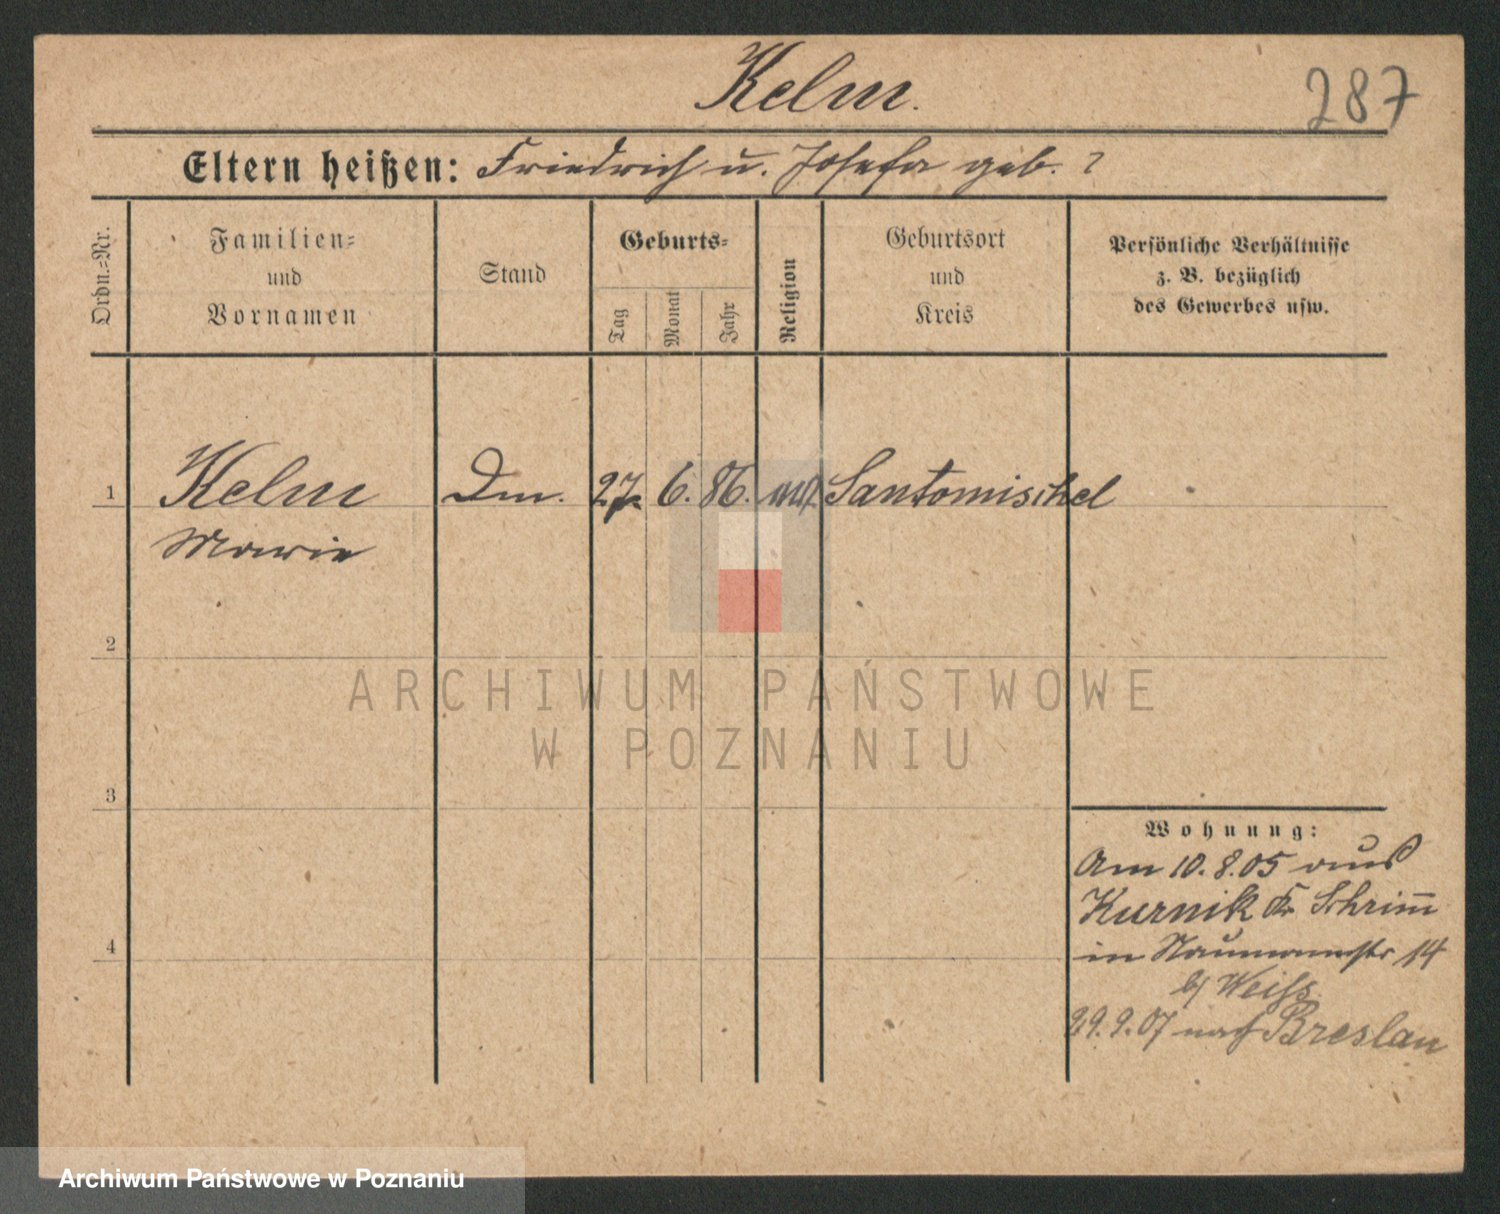 Kelm.
287
Eltern heißen: Friedrich u. Josefa geb. ?
Ordn.-Nr.
Familien-
und
Vornamen
Stand
Geburts-
Tag
Monat
Jahr
Religion
Geburtsort
und
Kreis
Persönliche Verhältnisse
z. B. bezüglich
des Gewerbes usw.
1 Kelm 27. 6. 86. Santomischel
Marie
2
ARCHIWUM PAŃSTWOWE
W POZNANIU
3
Wohnung:
Am 10.8.05 aus
Kurnik Kr Schrim̅
4
in Naumannstr 14
b/ Weiss.
29.9.07 nach Breslau
Archiwum Państwowe w Poznaniu